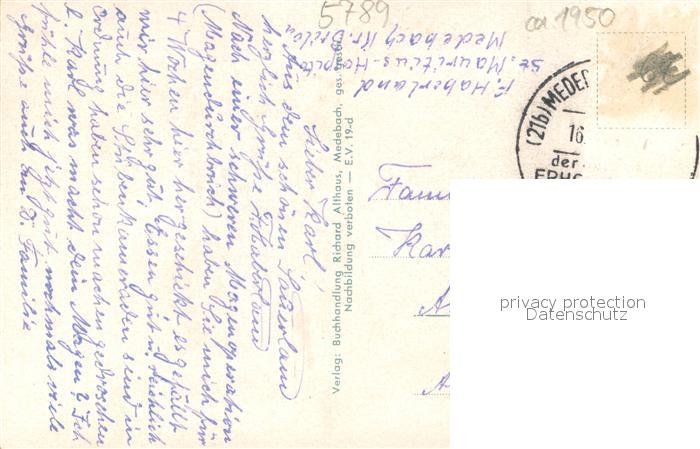 5789
ca 1950
F. Haberland
St. Mauritius-Hospital
Medebach Kr. Brilon
(21b) MEDE
16.
der
ERHO
Lieber Karl!
Aus dem schönen Sauerland
herzlich Grüße
Nach einer schweren Magenoperation
(Magendurchbruch) haben Sie mich für
4 Wochen hier hergeschickt es gefällt
mir hier sehr gut, Essen gut u. reichlich
auch die Stubenkameraden sind in
Ordnung haben schon machen gedroschen
L. Karl was macht dein Magen? Ich
fühle mich jetzt gut nochmals viele
Grüße auch an D. Familie
Verlag: Buchhandlung Richard Althaus, Medebach, ges. gesch.
Nachbildung verboten — E.V. 19-d
Fam
Kar
A
A
privacy protection
Datenschutz